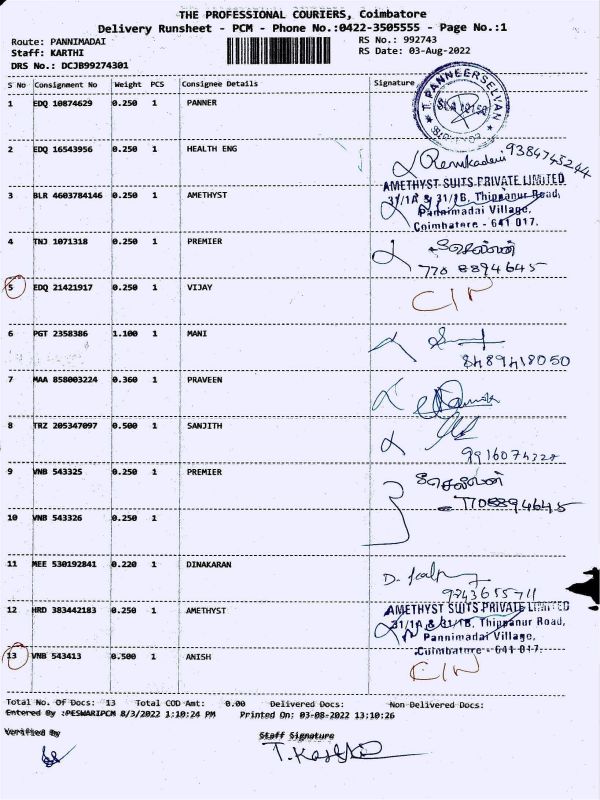 THE PROFESSIONAL COURIERS, Coimbatore
Delivery Runsheet - PCM - Phone No.:0422-3505555 - Page No.:1
Route: PANNIMADAI RS No.: 992743
Staff: KARTHI RS Date: 03-Aug-2022
DRS No.: DCJB99274301
S No Consignment No Weight PCS Consignee Details Signature
T. PANNEERSELVAN
1 EDQ 10874629 0.250 1 PANNER
2 EDQ 16543956 0.250 1 HEALTH ENG Renukadevi 9384745244
AMETHYST SUITS PRIVATE LIMITED
3 BLR 4603784146 0.250 1 AMETHYST 31/1A & 31/1B, Thippanur Road,
Pannimadai Village,
Coimbatore - 641 017.
4 TNJ 1071318 0.250 1 PREMIER
770 8894645
5 EDQ 21421917 0.250 1 VIJAY C/N
6 PGT 2358386 1.100 1 MANI
8489418050
7 MAA 858003224 0.360 1 PRAVEEN
8 TRZ 205347097 0.500 1 SANJITH
9916074328
9 VNB 543325 0.250 1 PREMIER
7708894645
10 VNB 543326 0.250 1
11 MEE 530192841 0.220 1 DINAKARAN
9743655711
AMETHYST SUITS PRIVATE LIMITED
12 HRD 383442183 0.250 1 AMETHYST 31/1A & 31/1B, Thippanur Road,
Pannimadai Village,
Coimbatore - 641 017.
13 VNB 543413 0.500 1 ANISH C/N
Total No. Of Docs: 13 Total COD Amt: 0.00 Delivered Docs: Non Delivered Docs:
Entered By :PESWARIPCM 8/3/2022 1:10:24 PM Printed On: 03-08-2022 13:10:26
Verified By Staff Signature
T. Karthi